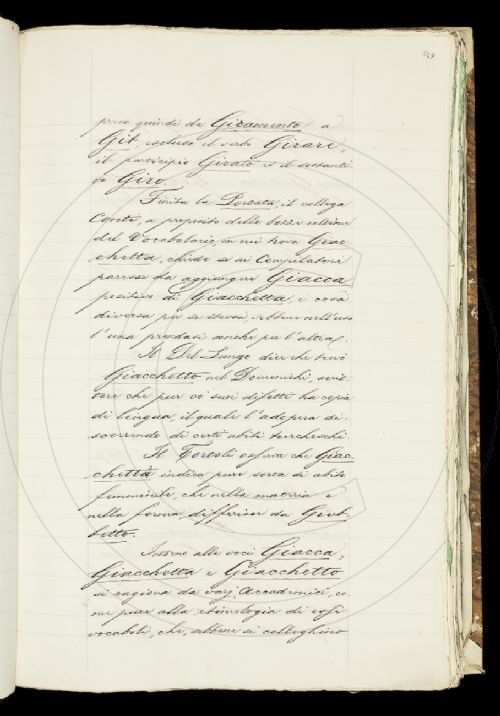 559
perso quindi da Giramento a
Git, escluso il verbo Girare,
il participio Girato e il sostanti
vo Giro.
Finita la Portata, il collega
Conti, a proposito delle bozze ultime
del Vocabolario, in cui trova Giac-
chetta, chiede se ai Compilatori
paresse da aggiungere Giacca
positivo di Giacchetta, e cosa
diversa per se stessa, sebbene nell'uso
l'una prendasi anche per l'altra.
Il Del Lungo dice che trovò
Giacchetto nel Domenichi, scrit-
tore che pur co' suoi difetti ha copia
di lingua, il quale l'adopera di-
scorrendo di certi abiti turcheschi.
Il Tortoli osserva che Giac-
chetta indica pure sorta di abito
femminile, che nella materia e
nella forma, differisce da Giub-
betto.
Intorno alle voci Giacca,
Giacchetta e Giacchetto
si ragiona da varj Accademici, co-
me pure alla etimologia di essi
vocaboli, che, sebbene si colleghino